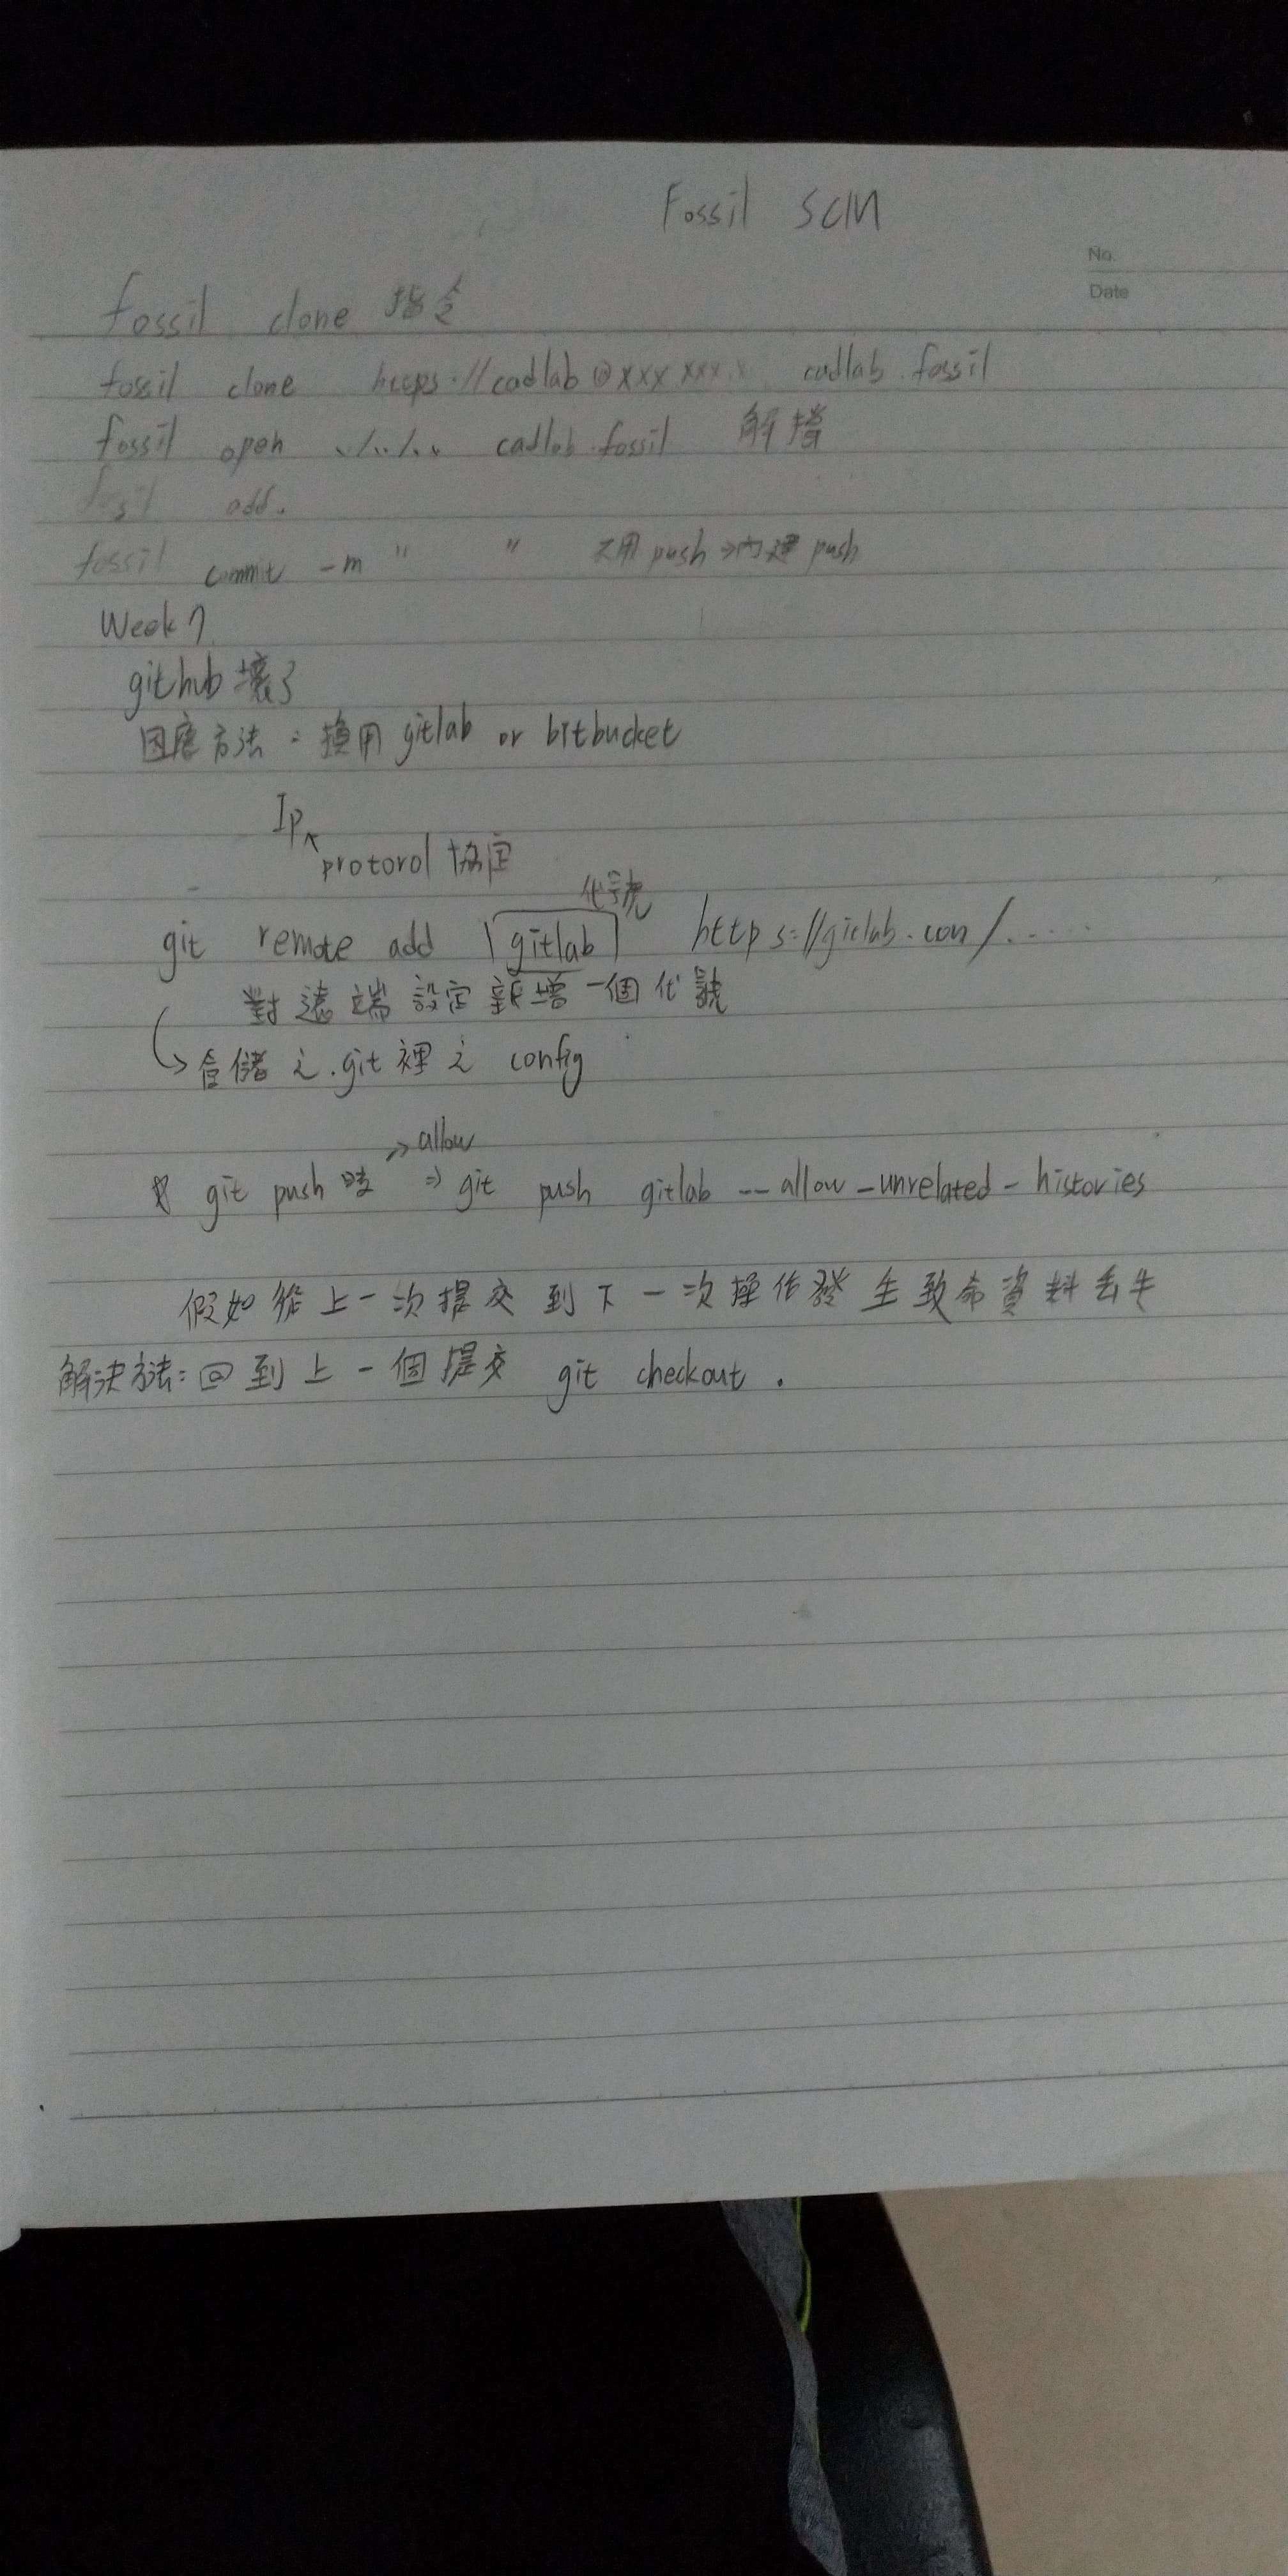 Fossil SCM
No.
Date
fossil clone 指令
fossil clone https://cadlab@xxx.xxx.x cadlab.fossil
fossil open ../../.. cadlab.fossil 解擋
fossil add.
fossil commit -m " " 不用push→內建push
Week7
github 壞了
因應方法：換用gitlab or bitbucket
Ip
protorol 協定
代號
git remote add gitlab https://gitlab.com/......
對遠端設定新增一個代號
會儲之.git裡之config
allow
git push 時 ⇒ git push gitlab --allow-unrelated-histories
假如從上一次提交到下一次操作發生致命資料丟失
解決方法：回到上一個提交 git checkout .